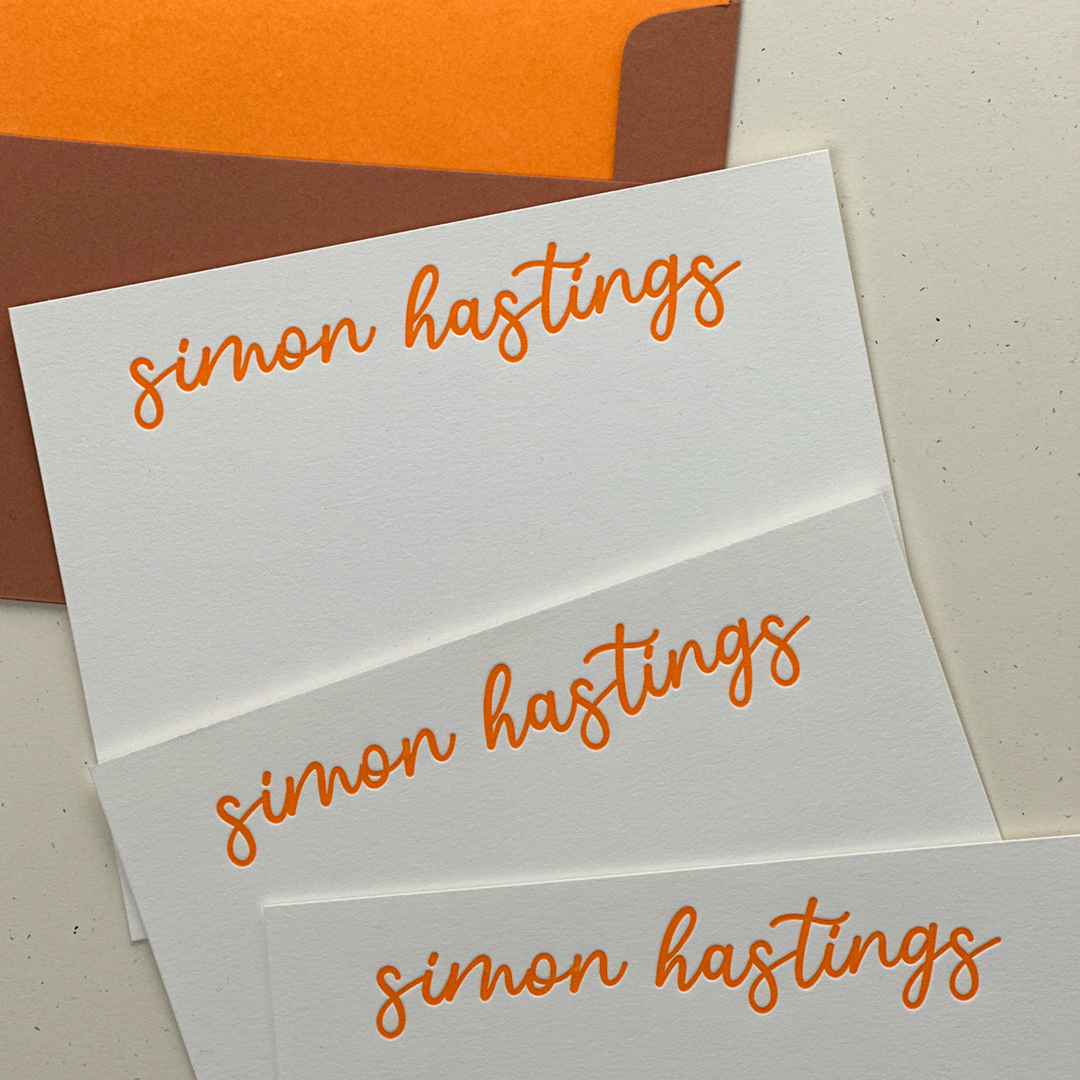 simon hastings
simon hastings
simon hastings